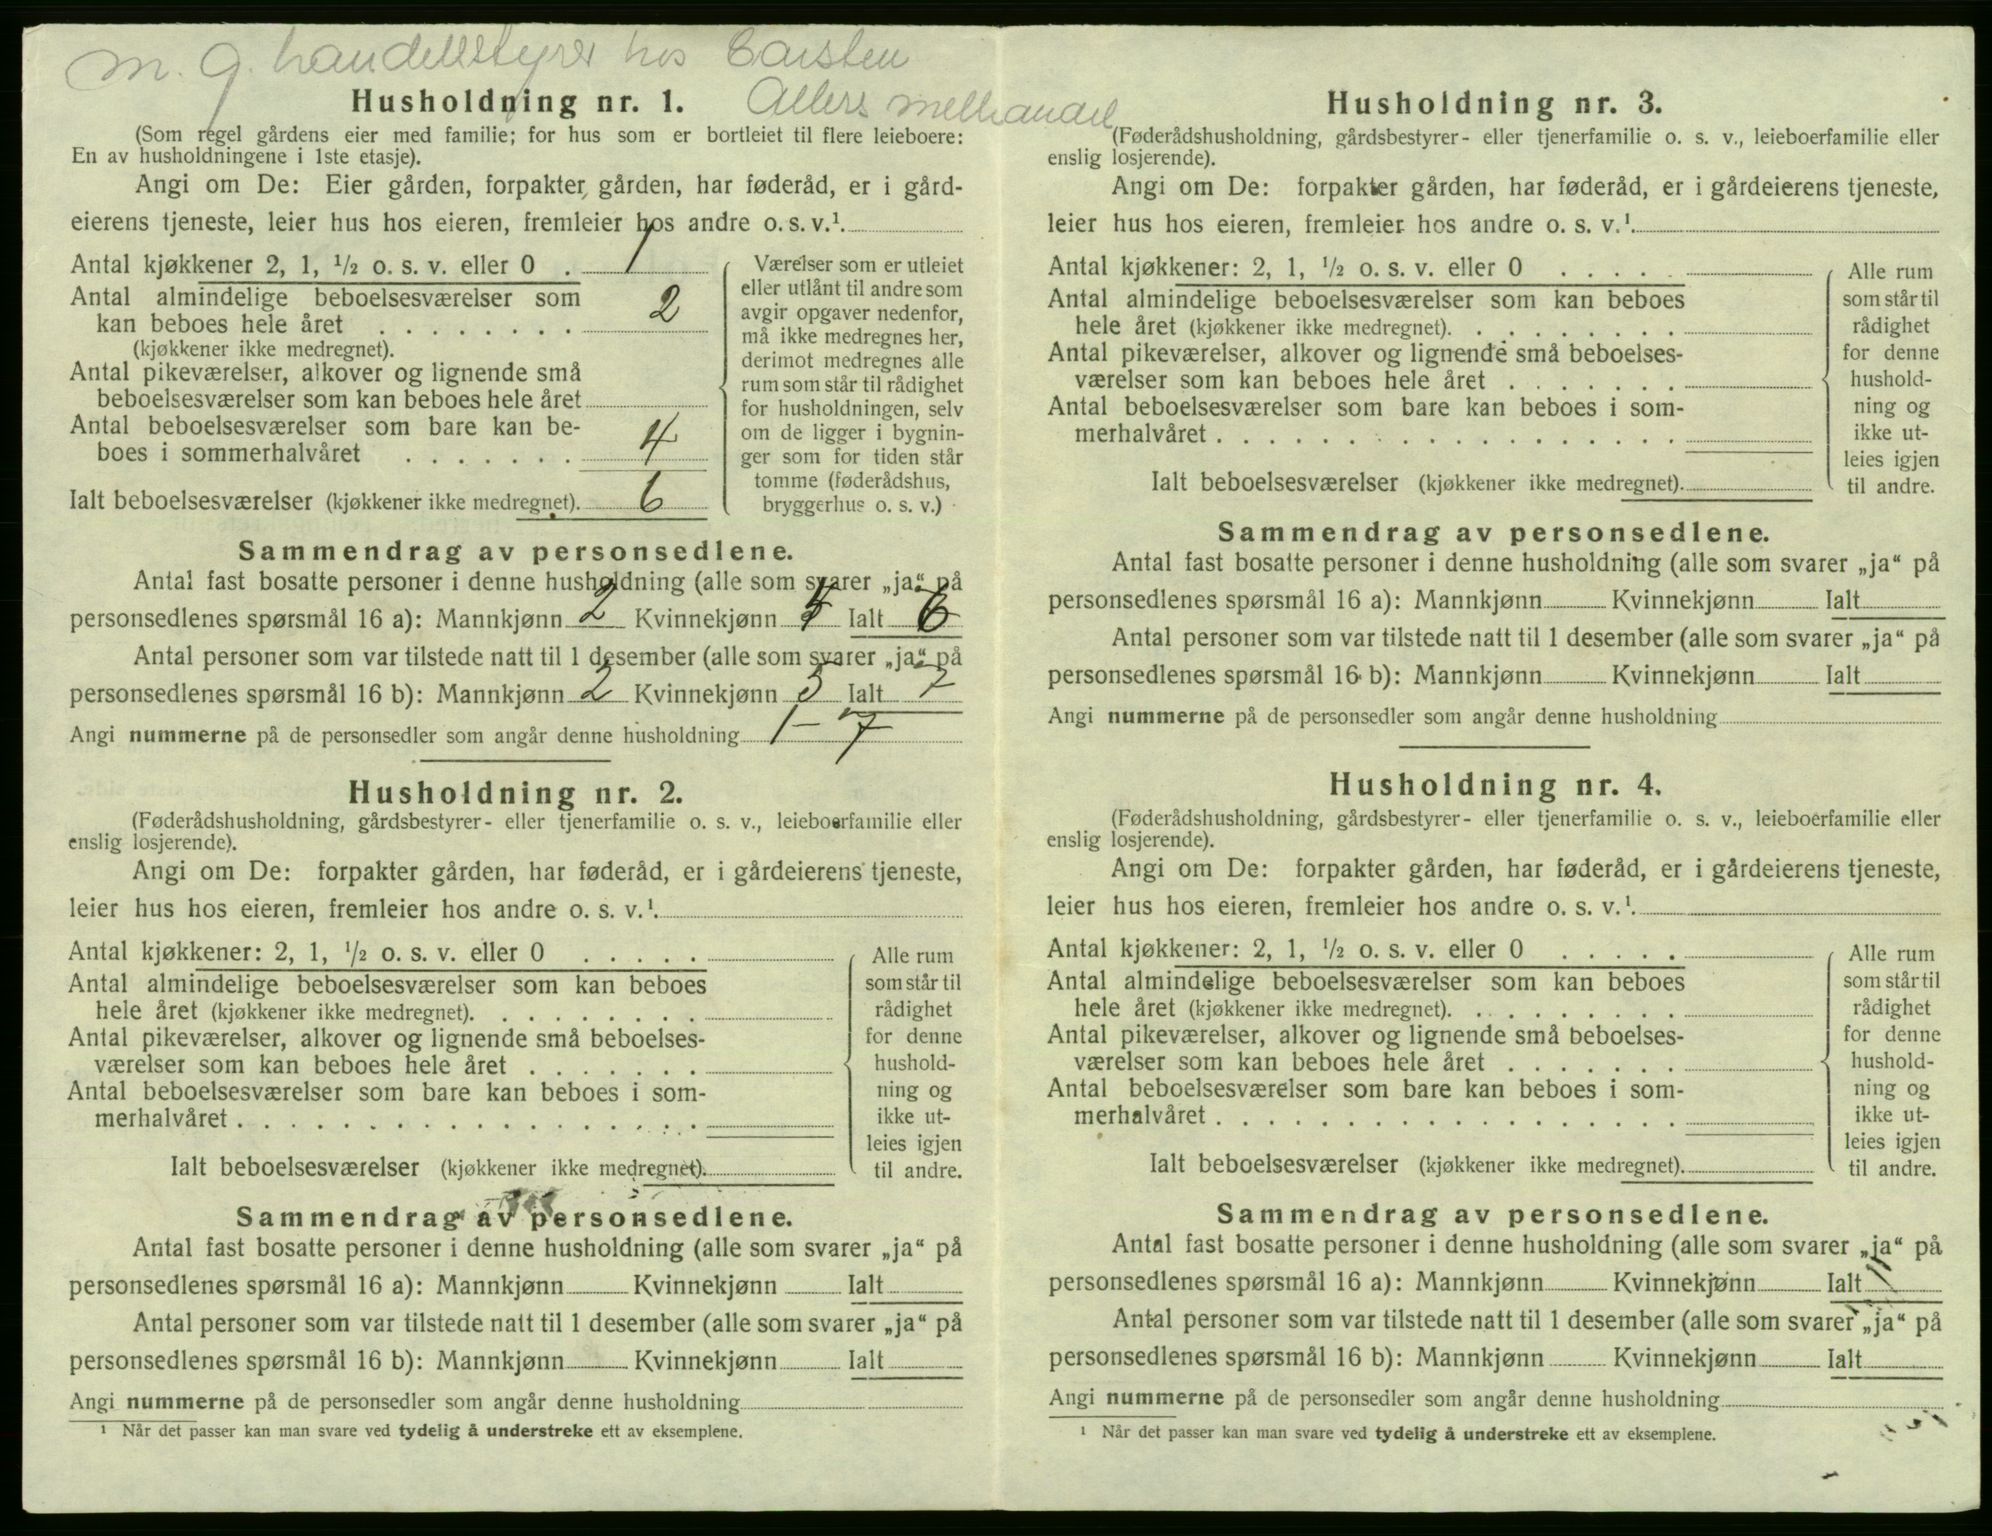 m. g. handelsstyrer hos Carsten
Allers melhandel
Husholdning nr. 1.
(Som regel gårdens eier med familie; for hus som er bortleiet til flere leieboere:
En av husholdningene i 1ste etasje).
Angi om De: Eier gården, forpakter gården, har føderåd, er i gård-
eierens tjeneste, leier hus hos eieren, fremleier hos andre o. s. v.¹
Antal kjøkkener 2, 1, ½ o. s. v. eller 0 . 1
Antal almindelige beboelsesværelser som
kan beboes hele året . . . . . . . . 2
(kjøkkener ikke medregnet).
Antal pikeværelser, alkover og lignende små
beboelsesværelser som kan beboes hele året
Antal beboelsesværelser som bare kan be-
boes i sommerhalvåret . . . . . . . 4
Ialt beboelsesværelser (kjøkkener ikke medregnet). 6
Værelser som er utleiet
eller utlånt til andre som
avgir opgaver nedenfor,
må ikke medregnes her,
derimot medregnes alle
rum som står til rådighet
for husholdningen, selv
om de ligger i bygnin-
ger som for tiden står
tomme (føderådshus,
bryggerhus o. s. v.)
Sammendrag av personsedlene.
Antal fast bosatte personer i denne husholdning (alle som svarer „ja“ på
personsedlenes spørsmål 16 a): Mannkjønn 2 Kvinnekjønn 4 Ialt 6
Antal personer som var tilstede natt til 1 desember (alle som svarer „ja“ på
personsedlenes spørsmål 16 b): Mannkjønn 2 Kvinnekjønn 5 Ialt 7
Angi nummerne på de personsedler som angår denne husholdning 1-7
Husholdning nr. 2.
(Føderådshusholdning, gårdsbestyrer- eller tjenerfamilie o. s. v., leieboerfamilie eller
enslig losjerende).
Angi om De: forpakter gården, har føderåd, er i gårdeierens tjeneste,
leier hus hos eieren, fremleier hos andre o. s. v.¹
Antal kjøkkener: 2, 1, ½ o. s. v. eller 0 . . . . .
Antal almindelige beboelsesværelser som kan beboes
hele året (kjøkkener ikke medregnet). . . . . . . . .
Antal pikeværelser, alkover og lignende små beboelses-
værelser som kan beboes hele året . . . . . . .
Antal beboelsesværelser som bare kan beboes i som-
merhalvåret . . . . . . . . . . . . . . . . . .
Ialt beboelsesværelser (kjøkkener ikke medregnet).
Alle rum
som står til
rådighet
for denne
hushold-
ning og
ikke ut-
leies igjen
til andre.
Sammendrag av personsedlene.
Antal fast bosatte personer i denne husholdning (alle som svarer „ja“ på
personsedlenes spørsmål 16 a): Mannkjønn Kvinnekjønn Ialt
Antal personer som var tilstede natt til 1 desember (alle som svarer „ja“ på
personsedlenes spørsmål 16 b): Mannkjønn Kvinnekjønn Ialt
Angi nummerne på de personsedler som angår denne husholdning
¹ Når det passer kan man svare ved tydelig å understreke ett av eksemplene.
Husholdning nr. 3.
(Føderådshusholdning, gårdsbestyrer- eller tjenerfamilie o. s. v., leieboerfamilie eller
enslig losjerende).
Angi om De: forpakter gården, har føderåd, er i gårdeierens tjeneste,
leier hus hos eieren, fremleier hos andre o. s. v.¹
Antal kjøkkener: 2, 1, ½ o. s. v. eller 0 . . . . .
Antal almindelige beboelsesværelser som kan beboes
hele året (kjøkkener ikke medregnet). . . . . . . . .
Antal pikeværelser, alkover og lignende små beboelses-
værelser som kan beboes hele året . . . . . . .
Antal beboelsesværelser som bare kan beboes i som-
merhalvåret . . . . . . . . . . . . . . . . . .
Ialt beboelsesværelser (kjøkkener ikke medregnet).
Alle rum
som står til
rådighet
for denne
hushold-
ning og
ikke ut-
leies igjen
til andre.
Sammendrag av personsedlene.
Antal fast bosatte personer i denne husholdning (alle som svarer „ja“ på
personsedlenes spørsmål 16 a): Mannkjønn Kvinnekjønn Ialt
Antal personer som var tilstede natt til 1 desember (alle som svarer „ja“ på
personsedlenes spørsmål 16 b): Mannkjønn Kvinnekjønn Ialt
Angi nummerne på de personsedler som angår denne husholdning
Husholdning nr. 4.
(Føderådshusholdning, gårdsbestyrer- eller tjenerfamilie o. s. v., leieboerfamilie eller
enslig losjerende).
Angi om De: forpakter gården, har føderåd, er i gårdeierens tjeneste,
leier hus hos eieren, fremleier hos andre o. s. v.¹
Antal kjøkkener: 2, 1, ½ o. s. v. eller 0 . . . . .
Antal almindelige beboelsesværelser som kan beboes
hele året (kjøkkener ikke medregnet). . . . . . . . .
Antal pikeværelser, alkover og lignende små beboelses-
værelser som kan beboes hele året . . . . . . .
Antal beboelsesværelser som bare kan beboes i som-
merhalvåret . . . . . . . . . . . . . . . . . .
Ialt beboelsesværelser (kjøkkener ikke medregnet).
Alle rum
som står til
rådighet
for denne
hushold-
ning og
ikke ut-
leies igjen
til andre.
Sammendrag av personsedlene.
Antal fast bosatte personer i denne husholdning (alle som svarer „ja“ på
personsedlenes spørsmål 16 a): Mannkjønn Kvinnekjønn Ialt
Antal personer som var tilstede natt til 1 desember (alle som svarer „ja“ på
personsedlenes spørsmål 16 b): Mannkjønn Kvinnekjønn Ialt
Angi nummerne på de personsedler som angår denne husholdning
¹ Når det passer kan man svare ved tydelig å understreke ett av eksemplene.